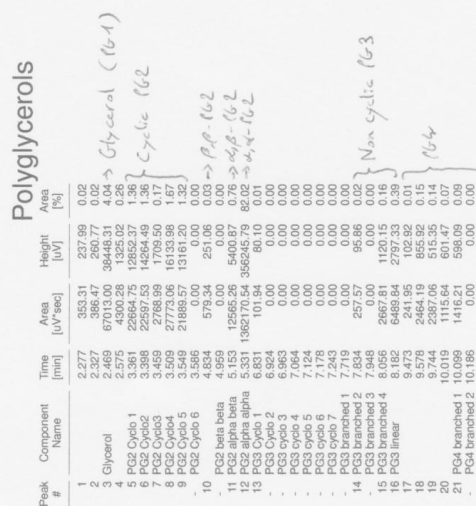 Polyglycerols
Peak # Component Name Time [min] Area [uV*sec] Height [uV] Area [%]
1 2.277 353.31 237.99 0.02
2 2.327 386.47 260.77 0.02
3 Glycerol 2.469 67013.00 38448.31 4.04 → Glycerol (PG1)
4 2.575 4300.28 1325.02 0.26
5 PG2 Cyclo 1 3.361 22664.75 12852.37 1.36
6 PG2 Cyclo2 3.398 22597.53 14264.49 1.36
7 PG2 Cyclo3 3.459 2768.99 1709.50 0.17 Cyclic PG2
8 PG2 Cyclo4 3.509 27773.06 16133.98 1.67
9 PG2 Cyclo 5 3.549 21889.57 13161.20 1.32
- PG2 Cyclo 6 3.586 0.00 0.00 0.00
10 4.834 579.34 251.06 0.03 → β,β-PG2
- PG2 beta beta 4.959 0.00 0.00 0.00
11 PG2 alpha beta 5.153 12565.26 5400.87 0.76 → α,β-PG2
12 PG2 alpha alpha 5.331 1362170.54 356245.79 82.02 → α,α-PG2
13 PG3 Cyclo 1 6.831 101.94 80.10 0.01
- PG3 Cyclo 2 6.924 0.00 0.00 0.00
- PG3 cyclo 3 6.963 0.00 0.00 0.00
- PG3 cyclo 4 7.064 0.00 0.00 0.00
- PG3 cyclo 5 7.124 0.00 0.00 0.00
- PG3 cyclo 6 7.178 0.00 0.00 0.00
- PG3 cyclo 7 7.243 0.00 0.00 0.00
- PG3 branched 1 7.719 0.00 0.00 0.00
14 PG3 branched 2 7.834 257.57 95.86 0.02
- PG3 branched 3 7.948 0.00 0.00 0.00 Non cyclic PG3
15 PG3 branched 4 8.056 2667.81 1120.15 0.16
16 PG3 linear 8.182 6489.84 2797.33 0.39
17 9.473 241.95 102.92 0.01
18 9.578 2464.19 855.92 0.15
19 9.744 2387.06 515.35 0.14 PG4
20 10.019 1115.64 601.47 0.07
21 PG4 branched 1 10.099 1416.21 598.09 0.09
- PG4 branched 2 10.186 0.00 0.00 0.00